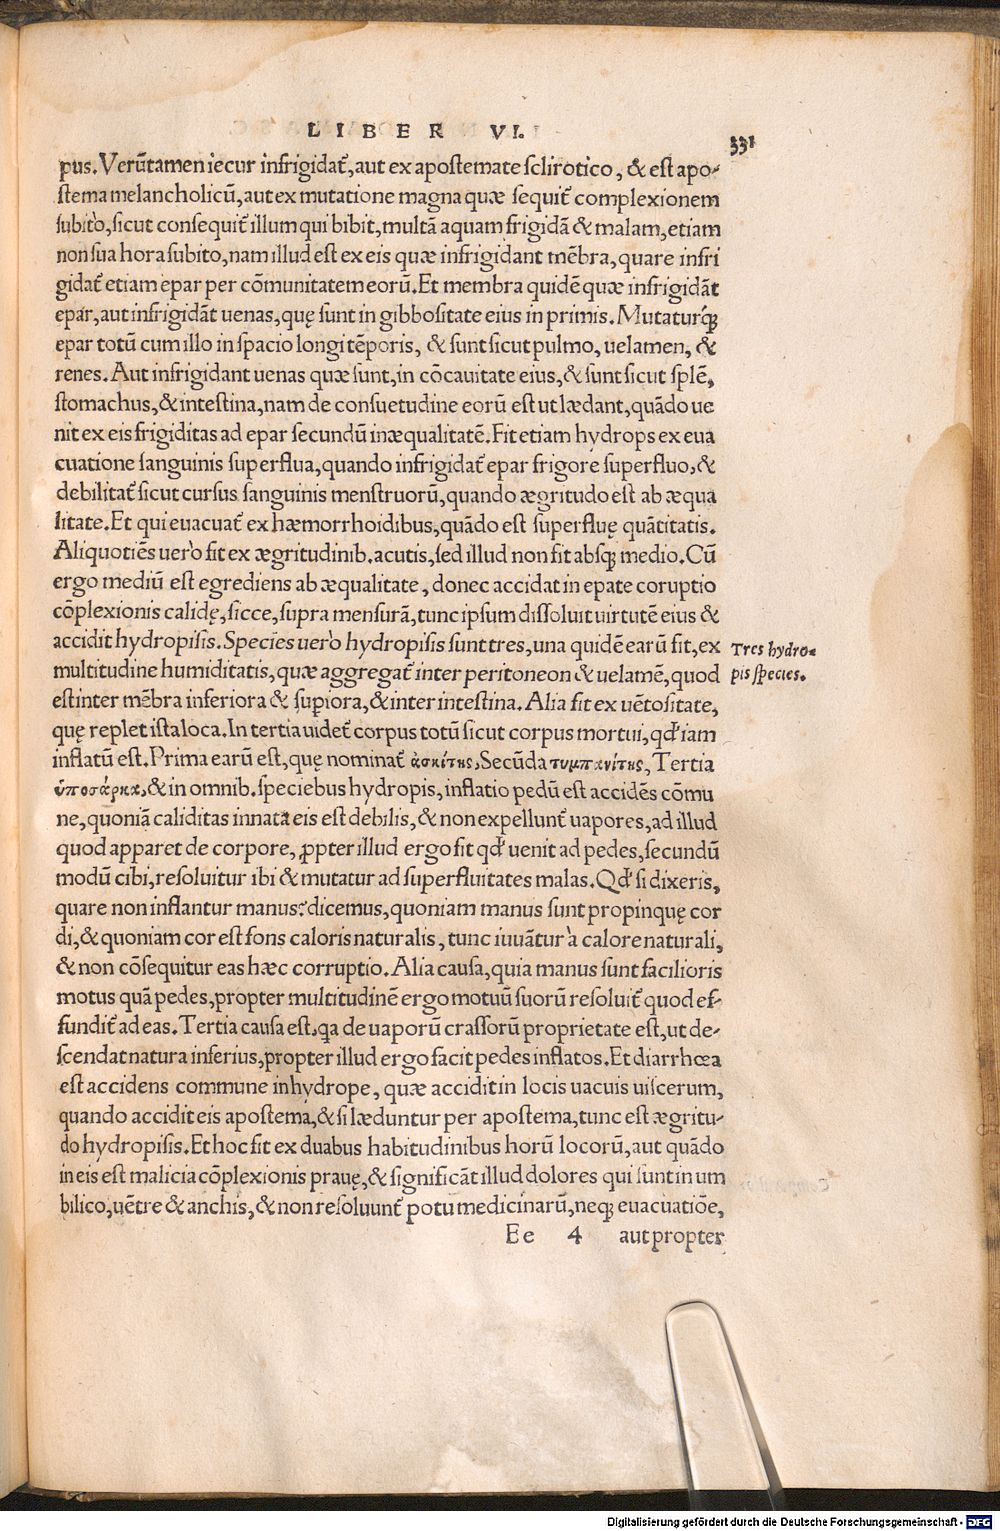 LIBER VI.
331
pus. Verũtamen iecur infrigidat̃, aut ex apostemate sclirotico, & est apo-
stema melancholicũ, aut ex mutatione magna quæ sequit̃ complexionem
subitò, sicut consequit̃ illum qui bibit, multã aquam frigidã & malam, etiam
non sua hora subito, nam illud est ex eis quæ infrigidant mẽbra, quare infri
gidat̃ etiam epar per cõmunitatem eorũ. Et membra quidẽ quæ infrigidãt
epar, aut infrigidãt uenas, quę sunt in gibbositate eius in primis. Mutaturq́;
epar totũ cum illo in spacio longi tẽporis, & sunt sicut pulmo, uelamen, &
renes. Aut infrigidant uenas quæ sunt, in cõcauitate eius, & sunt sicut splẽ,
stomachus, & intestina, nam de consuetudine eorũ est ut lædant, quãdo ue
nit ex eis frigiditas ad epar secundũ inæqualitatẽ. Fit etiam hydrops ex eua
cuatione sanguinis superflua, quando infrigidat̃ epar frigore superfluo, &
debilitat̃ sicut cursus sanguinis menstruorũ, quando ægritudo est ab æqua
litate. Et qui euacuat̃ ex hæmorrhoidibus, quãdo est superfluę quãtitatis.
Aliquotiẽs uerò fit ex ægritudinib. acutis, sed illud non fit absq; medio. Cũ
ergo mediũ est egrediens ab æqualitate, donec accidat in epate coruptio
cõplexionis calidę, sicce, supra mensurã, tunc ipsum dissoluit uirtutẽ eius &
accidit hydropisis. Species uerò hydropisis sunt tres, una quidẽ earũ fit, ex
Tres hydro-
pis species.
multitudine humiditatis, quæ aggregat̃ inter peritoneon & uelamẽ, quod
est inter mẽbra inferiora & supiora, & inter intestina. Alia fit ex uẽtositate,
quę replet ista loca. In tertia uidet̃ corpus totũ sicut corpus mortui, qđ iam
inflatũ est. Prima earũ est, quę nominat̃ ἀσκίτης, Secũda τυμπανίτης, Tertia
ὑποσάρκα, & in omnib. speciebus hydropis, inflatio pedũ est accidẽs cõmu
ne, quoniã caliditas innata eis est debilis, & non expellunt̃ uapores, ad illud
quod apparet de corpore, ꝓpter illud ergo fit qđ uenit ad pedes, secundũ
modũ cibi, resoluitur ibi & mutatur ad superfluitates malas. Qđ si dixeris,
quare non inflantur manus? dicemus, quoniam manus sunt propinquę cor
di, & quoniam cor est fons caloris naturalis, tunc iuuãtur à calore naturali,
& non cõsequitur eas hæc corruptio. Alia causa, quia manus sunt facilioris
motus quã pedes, propter multitudinẽ ergo motuũ suorũ resoluit̃ quod ef-
fundit̃ ad eas. Tertia causa est, qa de uaporũ crassorũ proprietate est, ut de-
scendat natura inferius, propter illud ergo facit pedes inflatos. Et diarrhœa
est accidens commune in hydrope, quæ accidit in locis uacuis uiscerum,
quando accidit eis apostema, & si læduntur per apostema, tunc est ægritu-
do hydropisis. Et hoc fit ex duabus habitudinibus horũ locorũ, aut quãdo
in eis est malicia cõplexionis prauę, & significãt illud dolores qui sunt in um
bilico, uẽtre & anchis, & non resoluunt̃ potu medicinarũ, neq; euacuatiõe,
Ee 4 aut propter
Digitalisierung gefördert durch die Deutsche Forschungsgemeinschaft - DFG